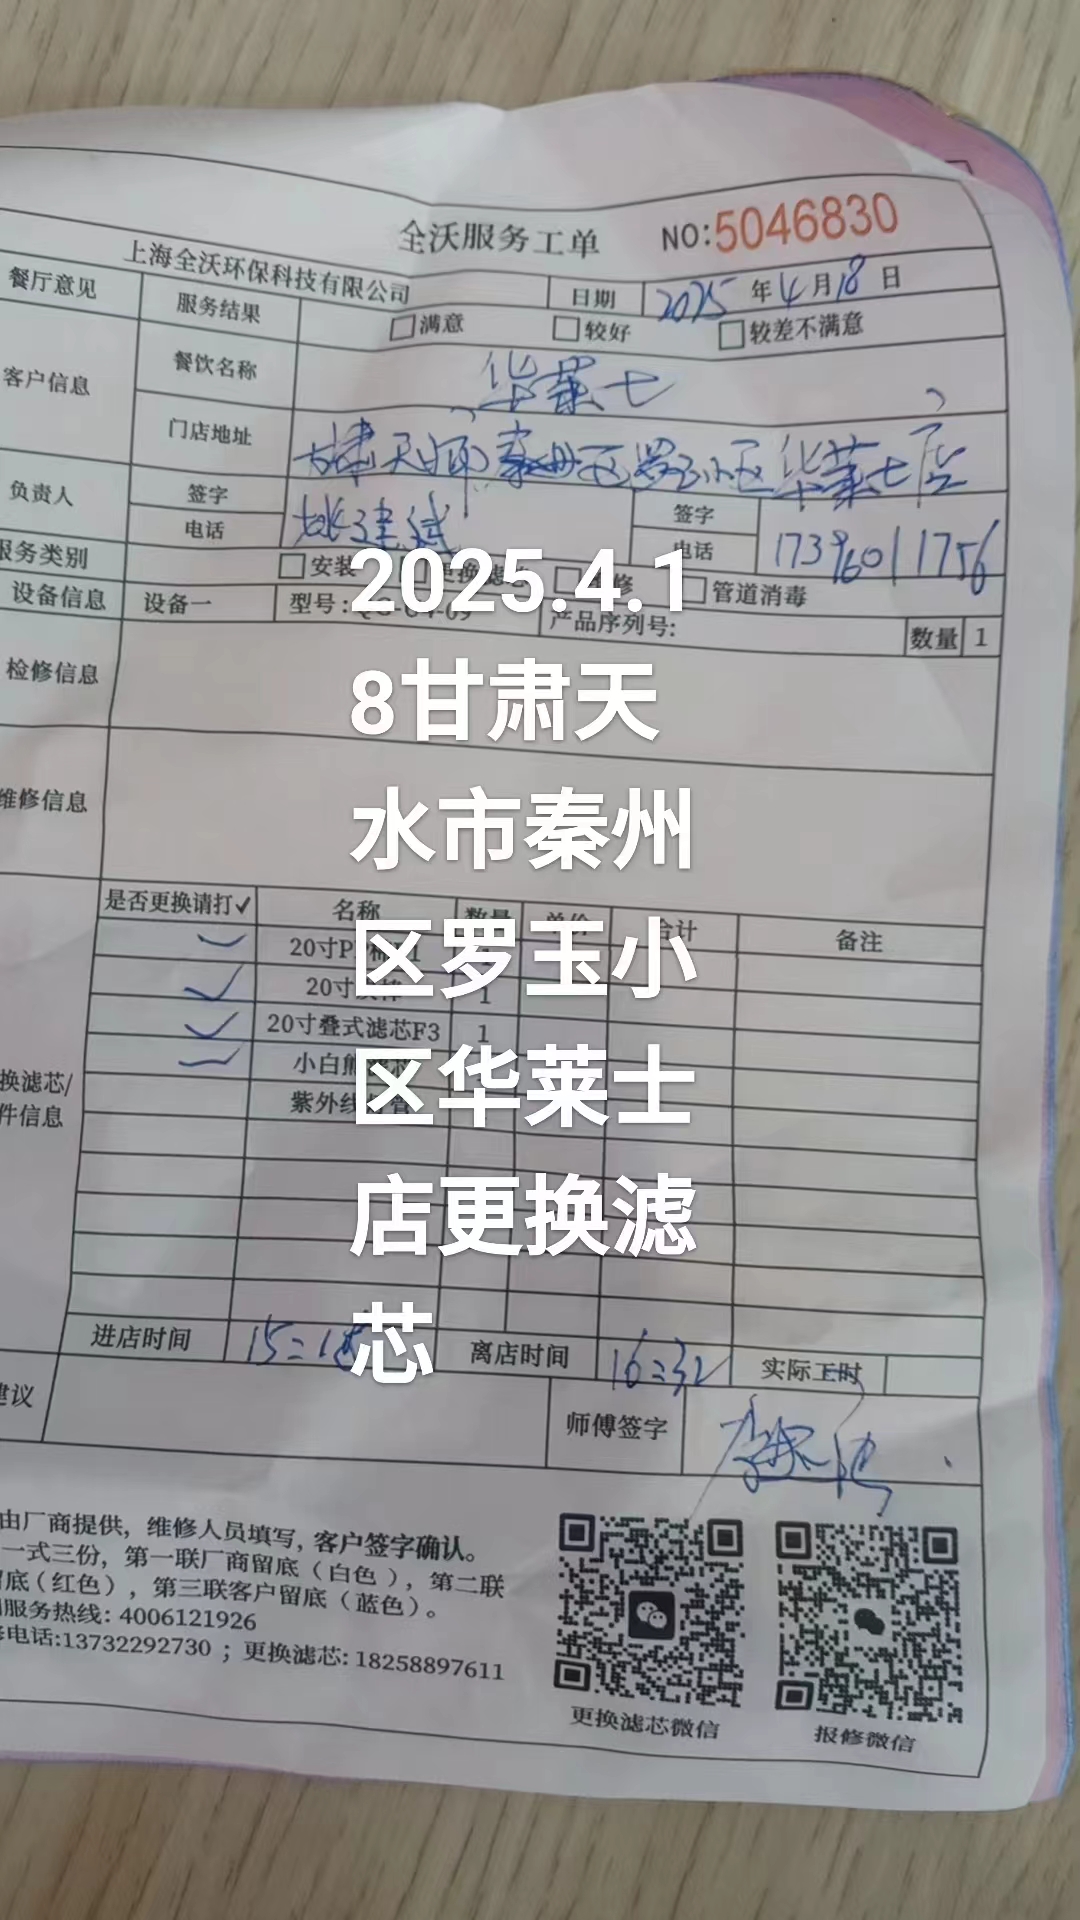 全沃服务工单 NO:5046830
上海全沃环保科技有限公司 日期 2025年4月18日
餐厅意见 服务结果 满意 较好 较差不满意
客户信息 餐饮名称 华莱士
门店地址 甘肃天水市秦州区罗玉小区华莱士店
负责人 签字 签字
电话 电话 17396011756
服务类别 安装 更换滤芯 维修 管道消毒
设备信息 设备一 型号: 产品序列号: 数量 1
检修信息
维修信息
是否更换请打✓ 名称 数量 单价 合计 备注
20寸PP棉
20寸炭棒 1
✓ 20寸叠式滤芯F3 1
小白熊滤芯
紫外线灯管
换滤芯/
件信息
进店时间 离店时间 16:32 实际工时
建议 师傅签字
由厂商提供，维修人员填写，客户签字确认。
一式三份，第一联厂商留底（白色），第二联
留底（红色），第三联客户留底（蓝色）。
服务热线: 4006121926
电话:13732292730 ；更换滤芯: 18258897611
更换滤芯微信 报修微信
2025.4.1
8甘肃天
水市秦州
区罗玉小
区华莱士
店更换滤
芯